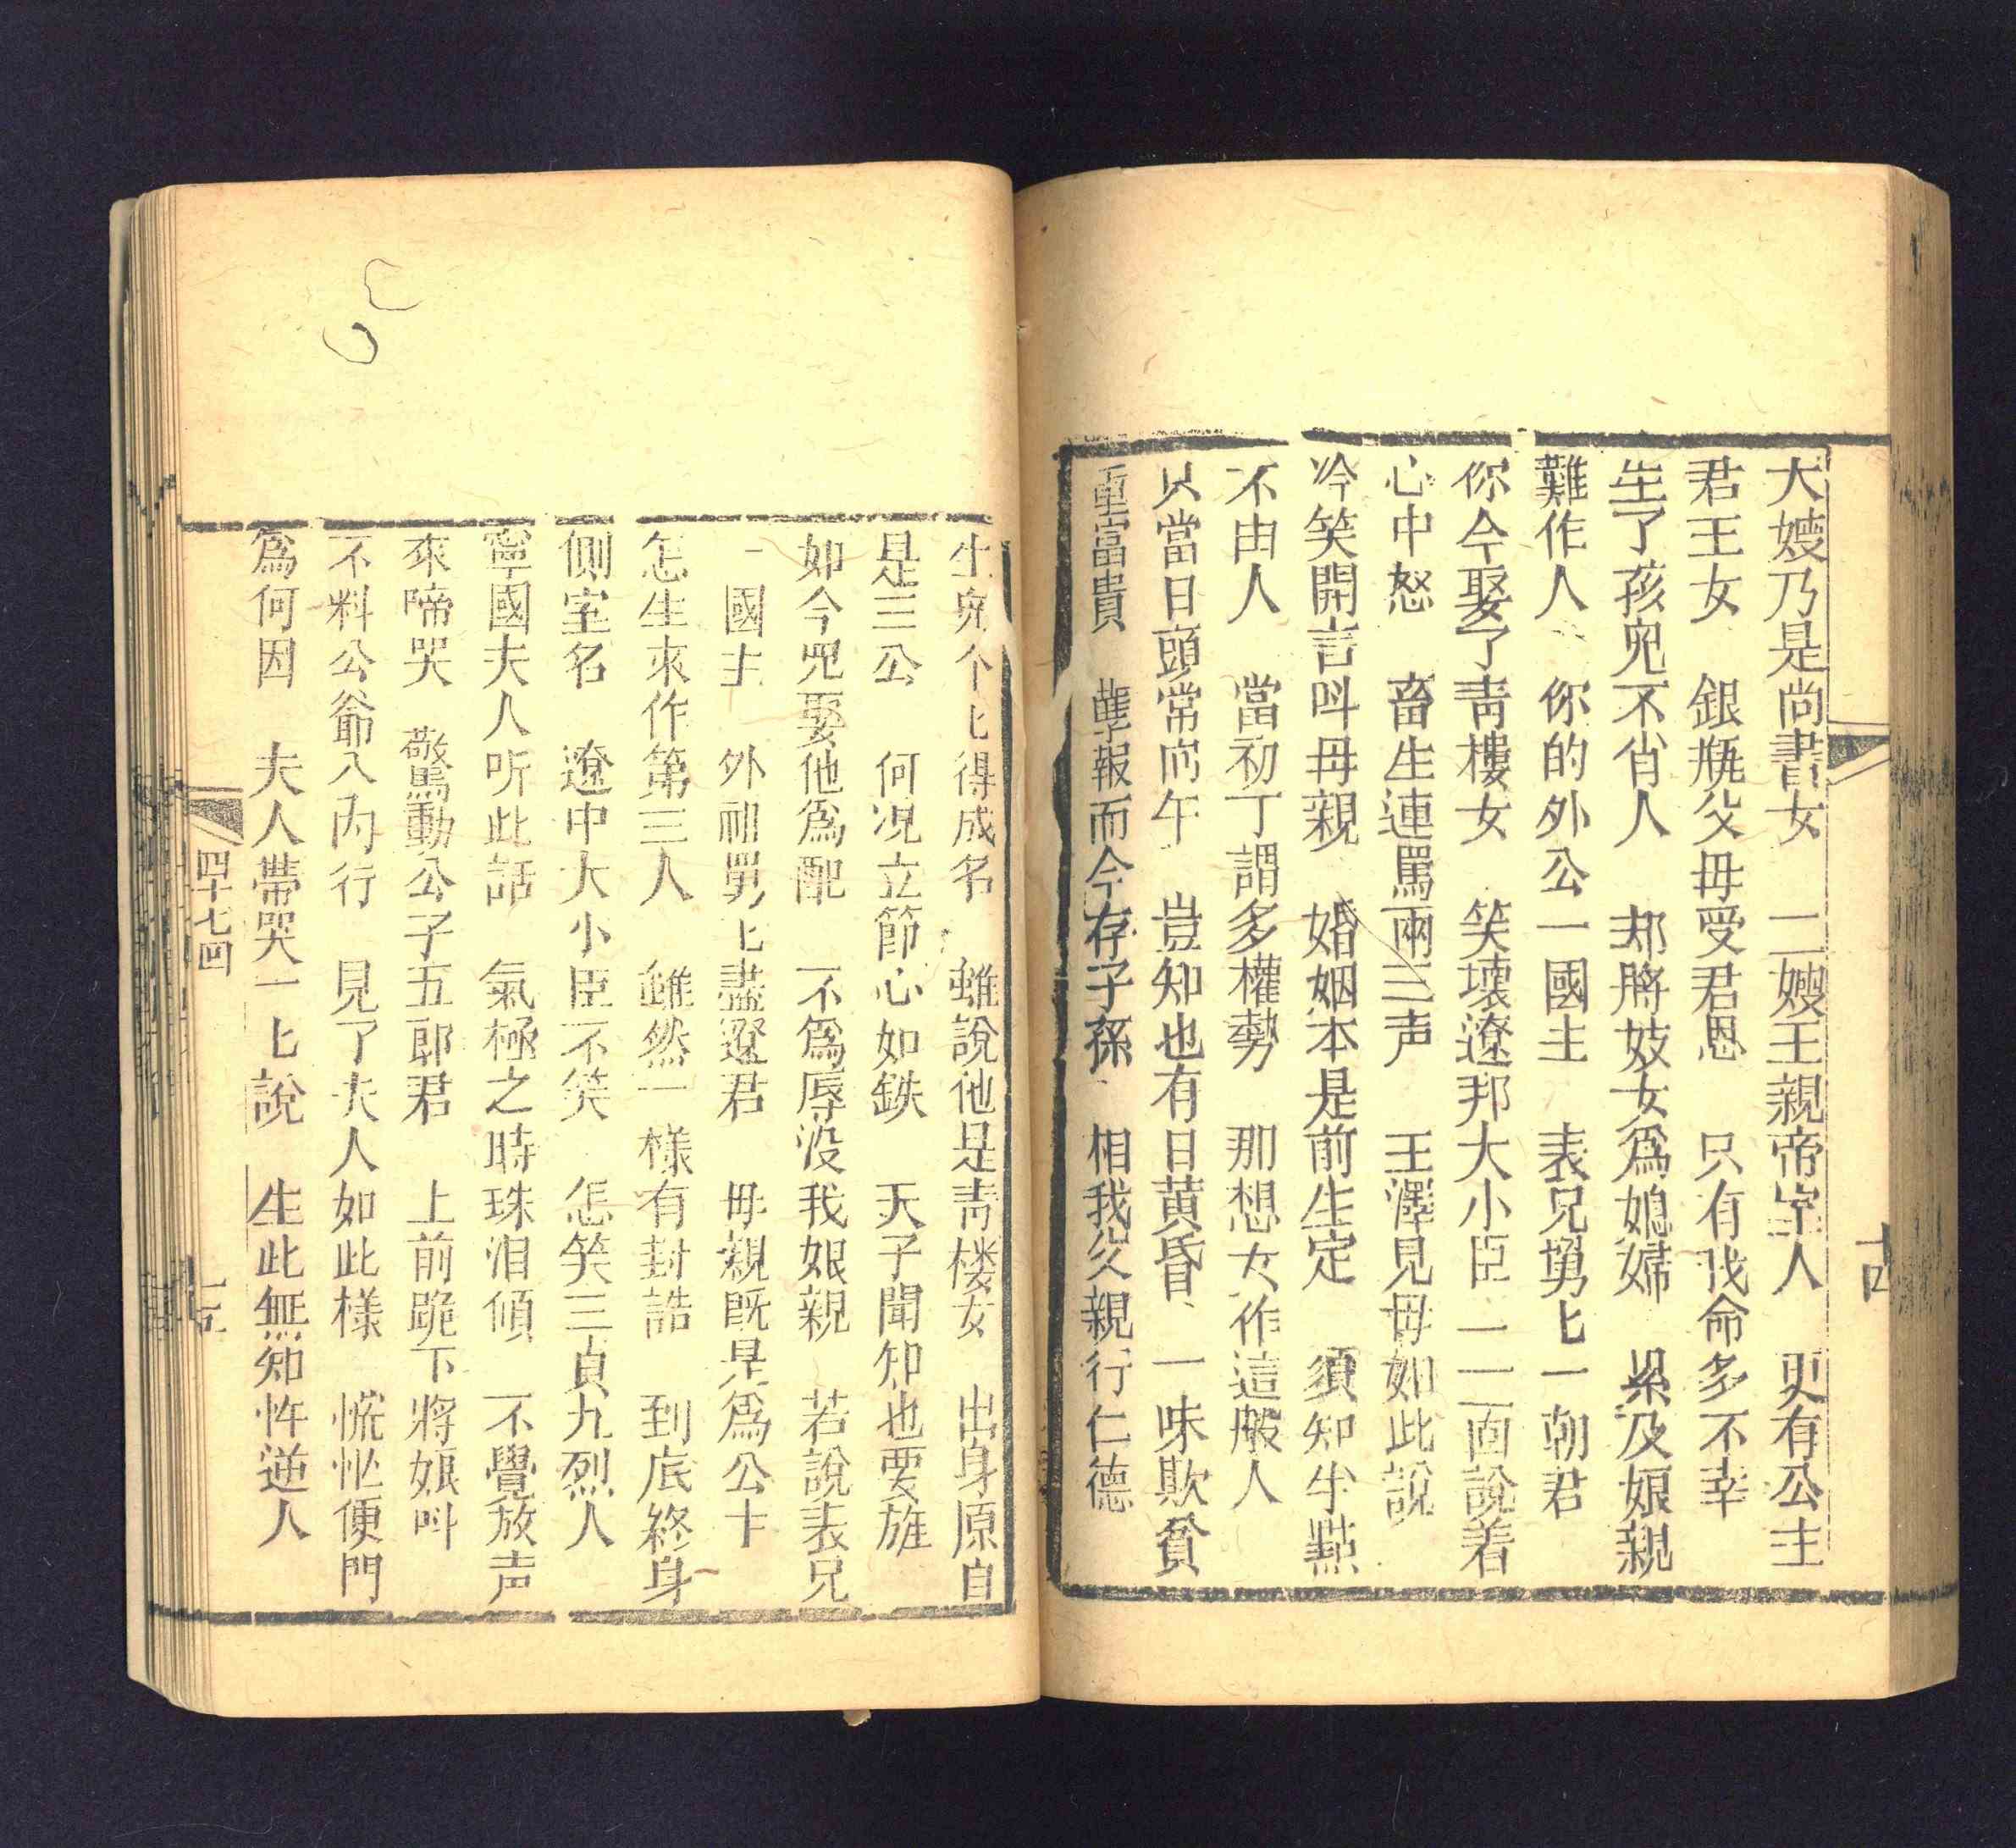 大嫂乃是尚書女　二嫂王親帝室人　更有公主
君王女　銀瓶父母受君恩　只有我命多不幸
生了孩兒不肖人　却將妓女爲媳婦　累及娘親
難作人　你的外公一國主　表兄舅匕一朝君
你今娶了靑樓女　笑壞遼邦大小臣　一一面說着
心中怒　畜生連罵兩三声　王澤見母如此說
冷笑開言呌母親　婚姻本是前生定　須知半㸃
不由人　當初丁謂多權勢　那想女作這般人
只當日頭常向午　豈知也有日黄昏　一味欺貧
重富貴　孽報而今存子孫　相我父親行仁德
十四
生兒个匕得成名　雖說他是靑楼女　出身原自
是三公　何况立節心如鉄　天子聞知也要旌
如今兕娶他爲配　不爲辱没我娘親　若說表兄
一國主　外祖舅匕盡遼君　母親既是爲公主
怎生來作第三人　雖然一様有封誥　到底終身
側室名　遼中大小臣不笑　怎笑三貞九烈人
寧國夫人听此話　氣極之時珠泪傾　不覺放声
來啼哭　驚動公子五郎君　上前跪下將娘呌
不料公爺入內行　見了夫人如此様　慌忙便問
爲何因　夫人帶哭一匕說　生此無知忤逆人
四十七囬